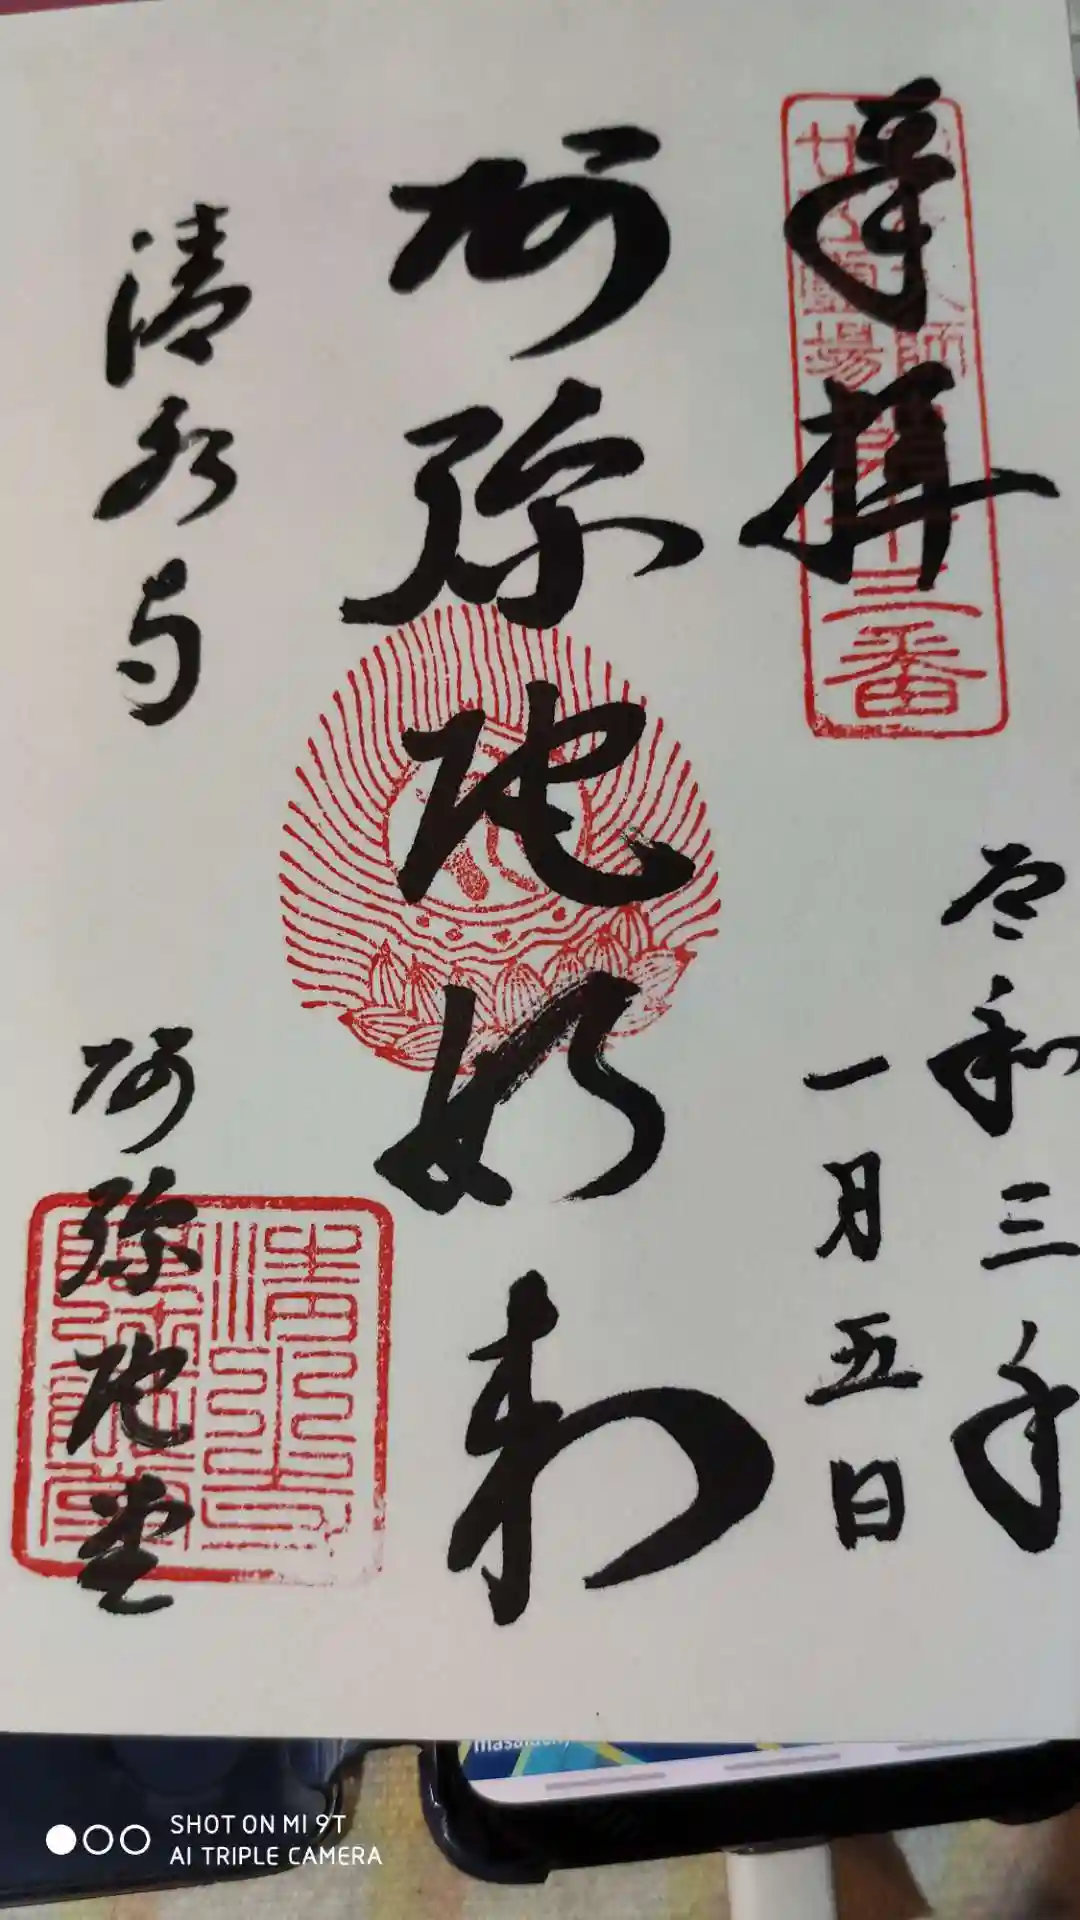 奉拝
令和三年
一月五日
阿弥陀如来
清水寺
阿弥陀堂
霊場
十三番
清水寺
阿弥陀堂
SHOT ON MI 9T
AI TRIPLE CAMERA